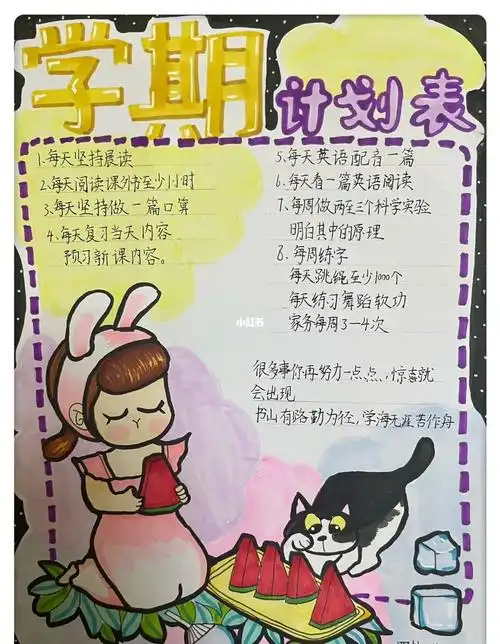 学期
计划表
1.每天坚持晨读
2.每天阅读课外书至少1小时
3.每天坚持做一篇口算
4.每天复习当天内容
预习新课内容。
5.每天英语配音一篇
6.每天看一篇英语阅读
7.每周做两至三个科学实验
明白其中的原理
8.每周练字
每天跳绳至少1000个
每天练习舞蹈软功
家务每周3-4次
小红书
很多事你再努力一点点,惊喜就
会出现
书山有路勤为径,学海无涯苦作舟